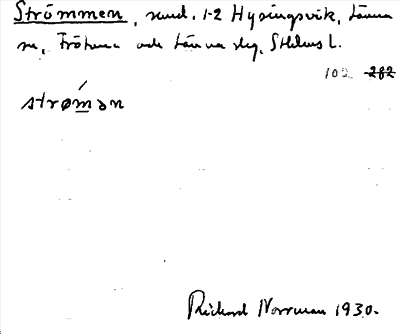 Strömmen, sund. 1-2 Hysingsvik, Länna
sn, Frötuna och Länna slg, Sthlms l.
102 282
strømən
Rickard Norrman 1930.